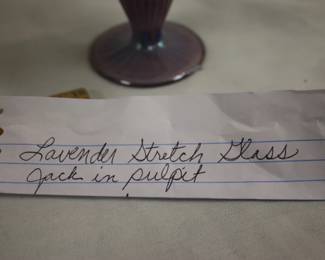 Lavender Stretch Glass
Jack in pulpit